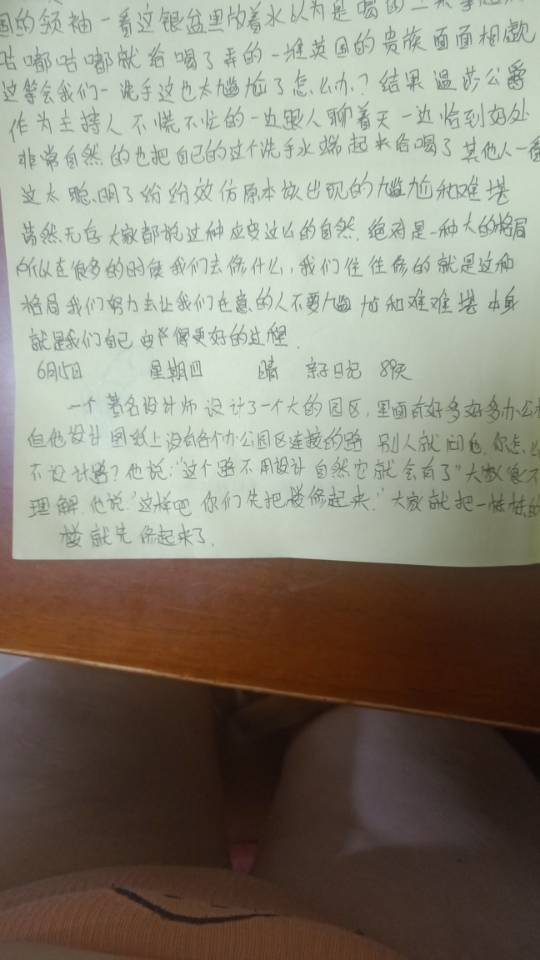 国的领袖一看这银盆里放着水以为是喝的
咕嘟咕嘟就给喝了弄的一堆英国的贵族面面相觑
这等会我们一洗手这也太尴尬了怎么办？结果温莎公爵
作为主持人不慌不忙的一边跟人聊着天一边恰到好处
非常自然的也把自己的这个洗手水端起来给喝了其他人一看
这太聪明了纷纷效仿原本欲出现的尴尬和难堪
荡然无存大家都说这种应变这么的自然，绝对是一种大的格局
所以在很多的时候我们去修什么，我们往往修的就是这种
格局我们努力去让我们在意的人不要尴尬和难难堪本身
就是我们自己变得更好的过程
6月15日 星期四 晴 亲子日记 89天
一个著名设计师设计了一个大的园区，里面有好多好多办公
但他设计图纸上没有各个办公园区连接的路 别人就问他，你怎么
不设计路？他说：“这个路不用设计自然它就会有了”大家很不
理解 他说“这样吧 你们先把楼修起来。”大家就把一桩桩的
楼就先修起来了。